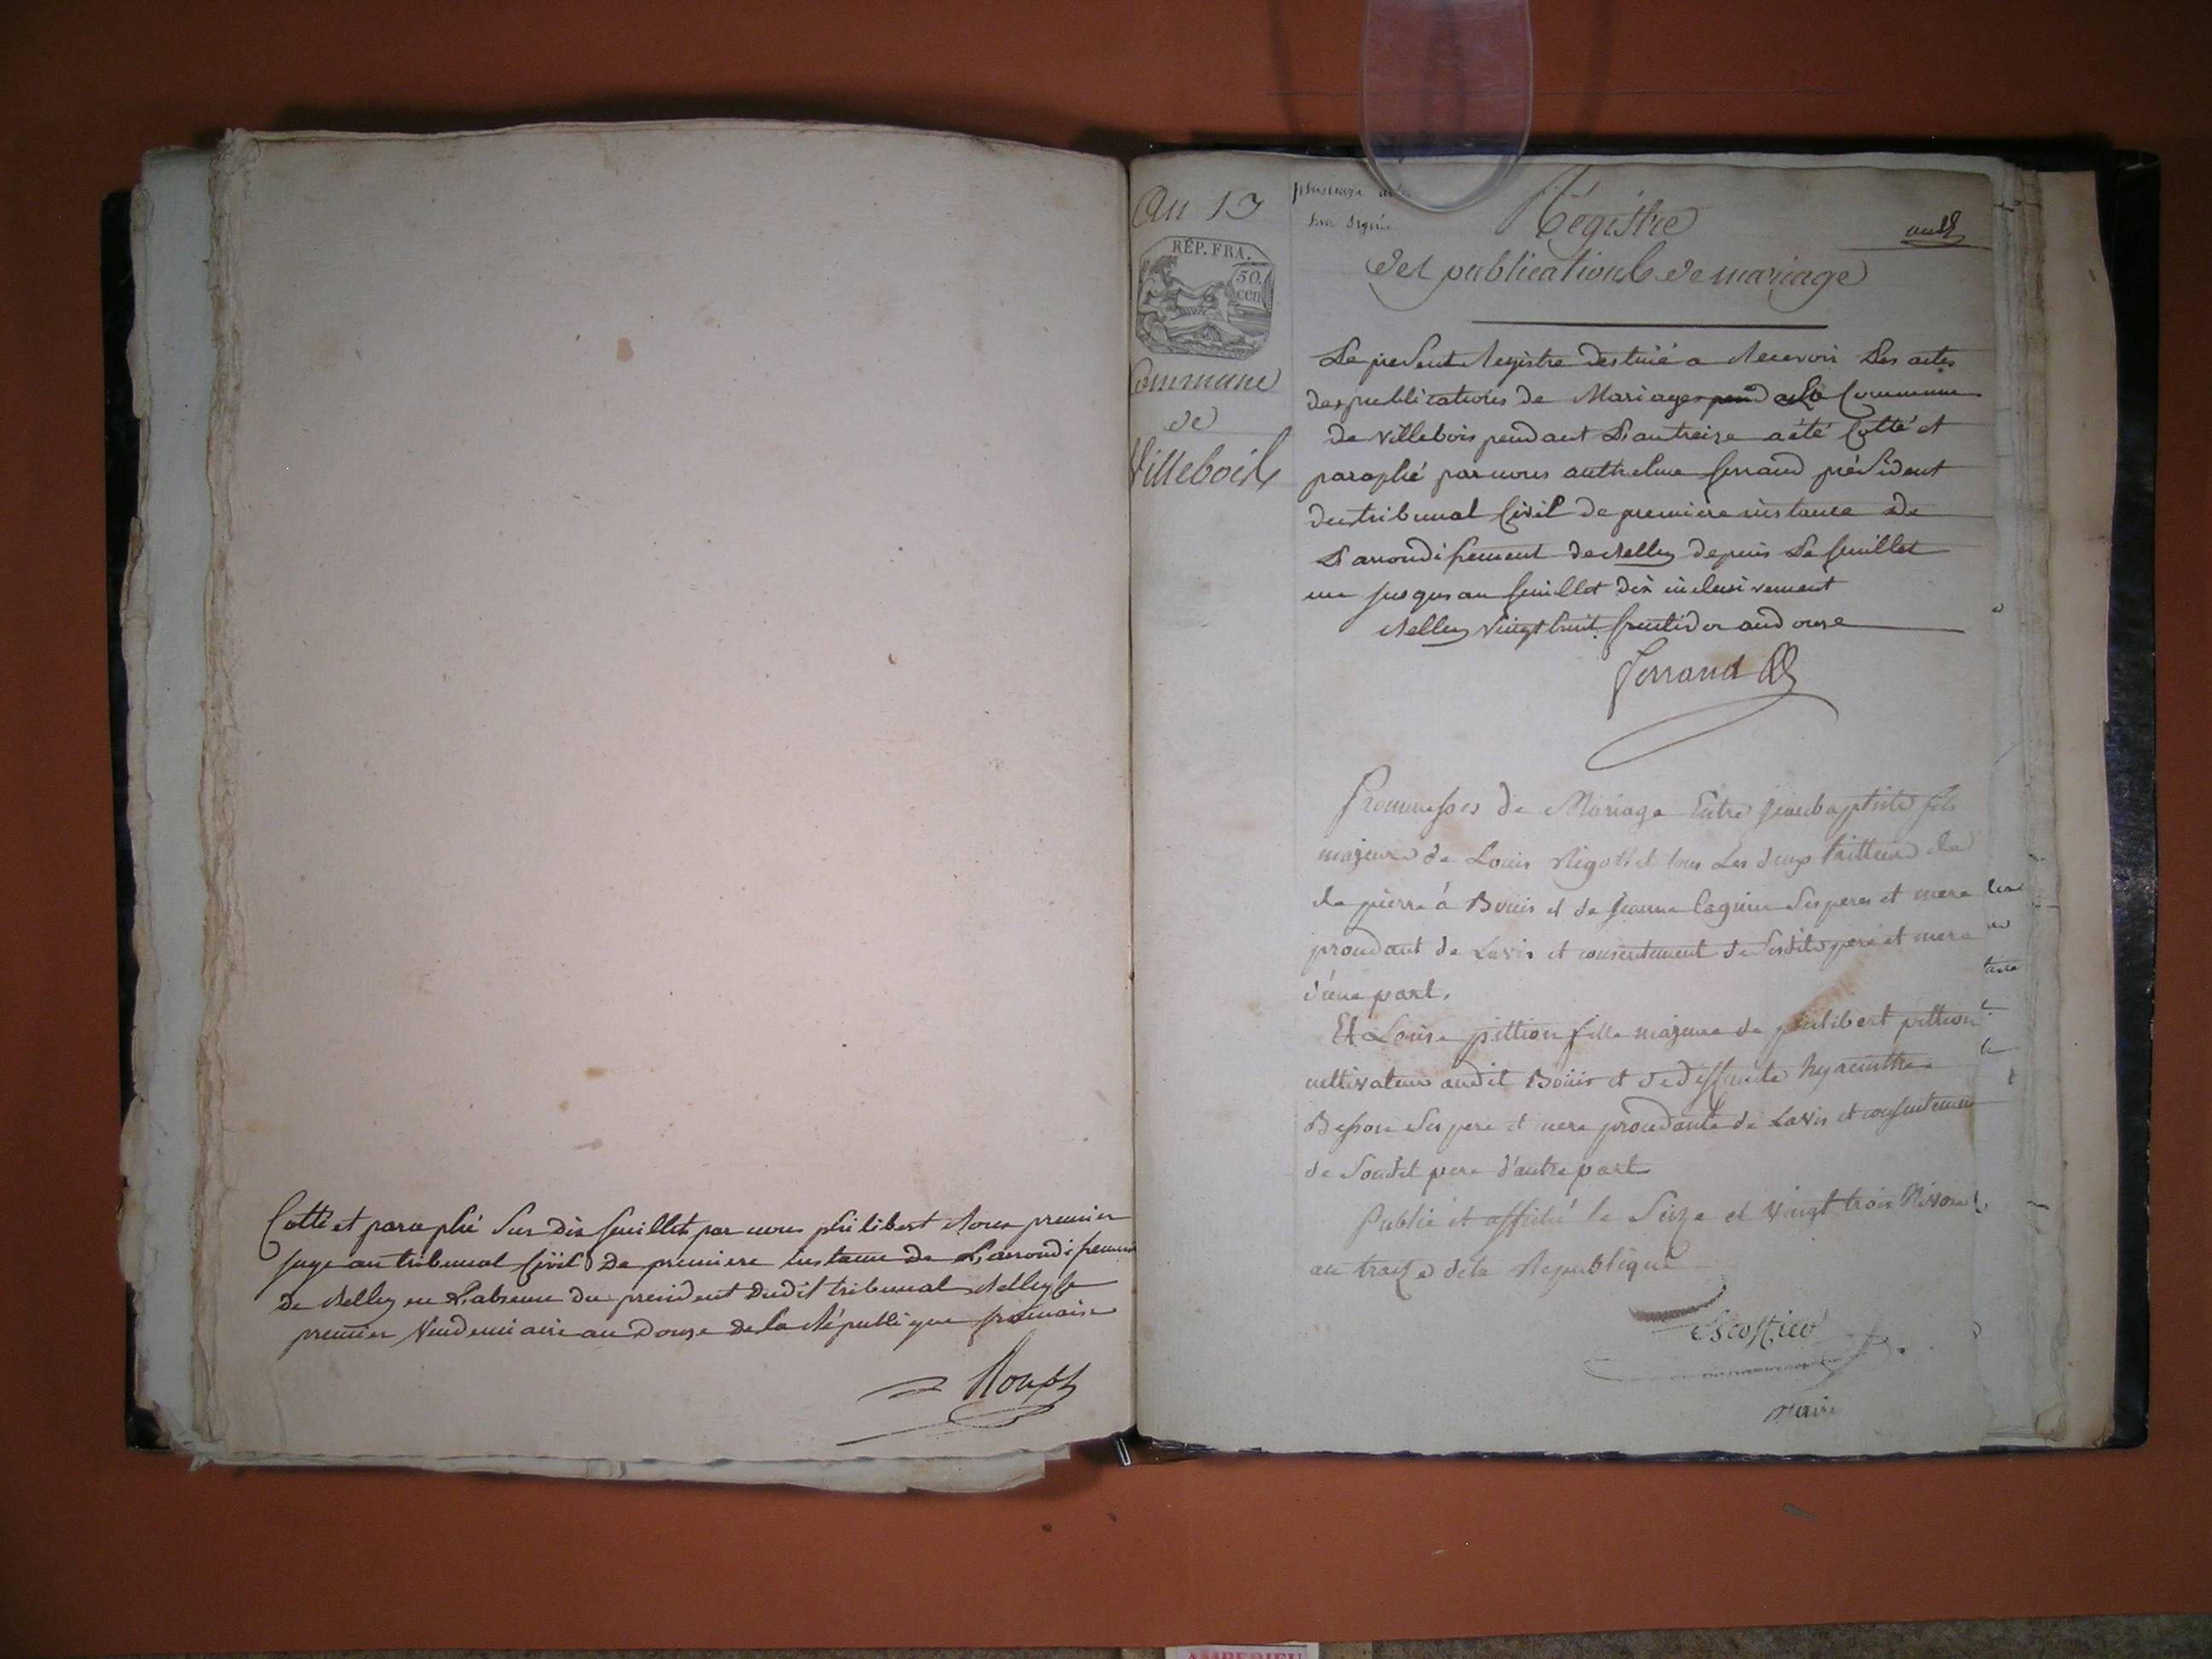 Cotté et paraphé sur dix feuillets par nous philibert Roux premier
juge au tribunal Civil de premiere instance de L'arrondissement
de Belley en L'absence du president dudit tribunal Belley le
premier Vendemiaire an douze de la République francaise
An 13
RÉP. FRA.
50.
cen
Commune
de
Villebois
plusieurs
non signés
Régistre
des publications de mariage
Le present Registre destiné a Recevoir Les actes
des publications de Mariages de la Commune
de villebois pendant L'an treize a été Cotté et
paraphé par nous anthelme ferrand président
du tribunal Civil de premiere instance de
L'arrondissement de Belley depuis Le feuillet
un jusques au feuillet dix inclusivement
Belley Vingt huit fructidor an douze
Ferrand
Promesses de Mariage Entre Jean baptiste fils
majeur de Louis Rigollet tous Les deux tailleurs de
de pierre à Bouis et de Jeanne ses peres et mere
procedant de L'avis et consentement de sesdits pere et mere
d'une part.
Et Louise pittion fille majeure de philibert pittion
cultivateur audit Bouis et de deffunte hyacinthe
Besson ses pere et mere procedante de L'avis et consentement
de Sondit pere d'autre part
Publié et affiché le Seize et Vingt trois Nivose
an treize de la Republique
Escoffier
maire
AMBERIEU